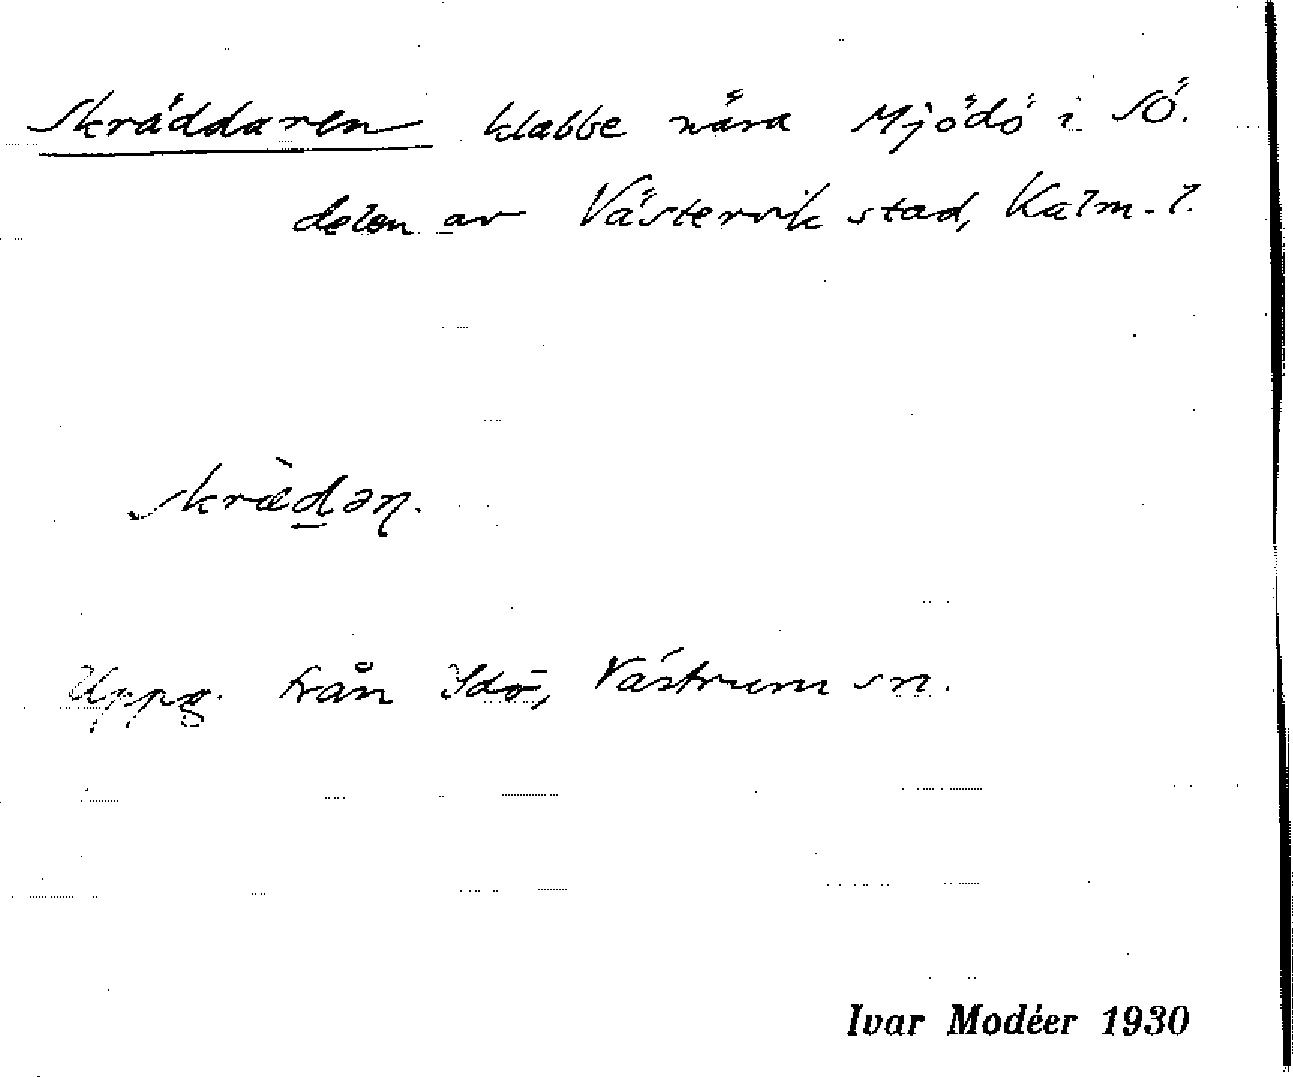 Skräddaren klabbe nära Mjödö i SÖ.
delen av Västervik stad, Kalm. l.
skræ̀d̲ən̡.
Uppg. från Idö, Västrum sn.
Ivar Modéer 1930